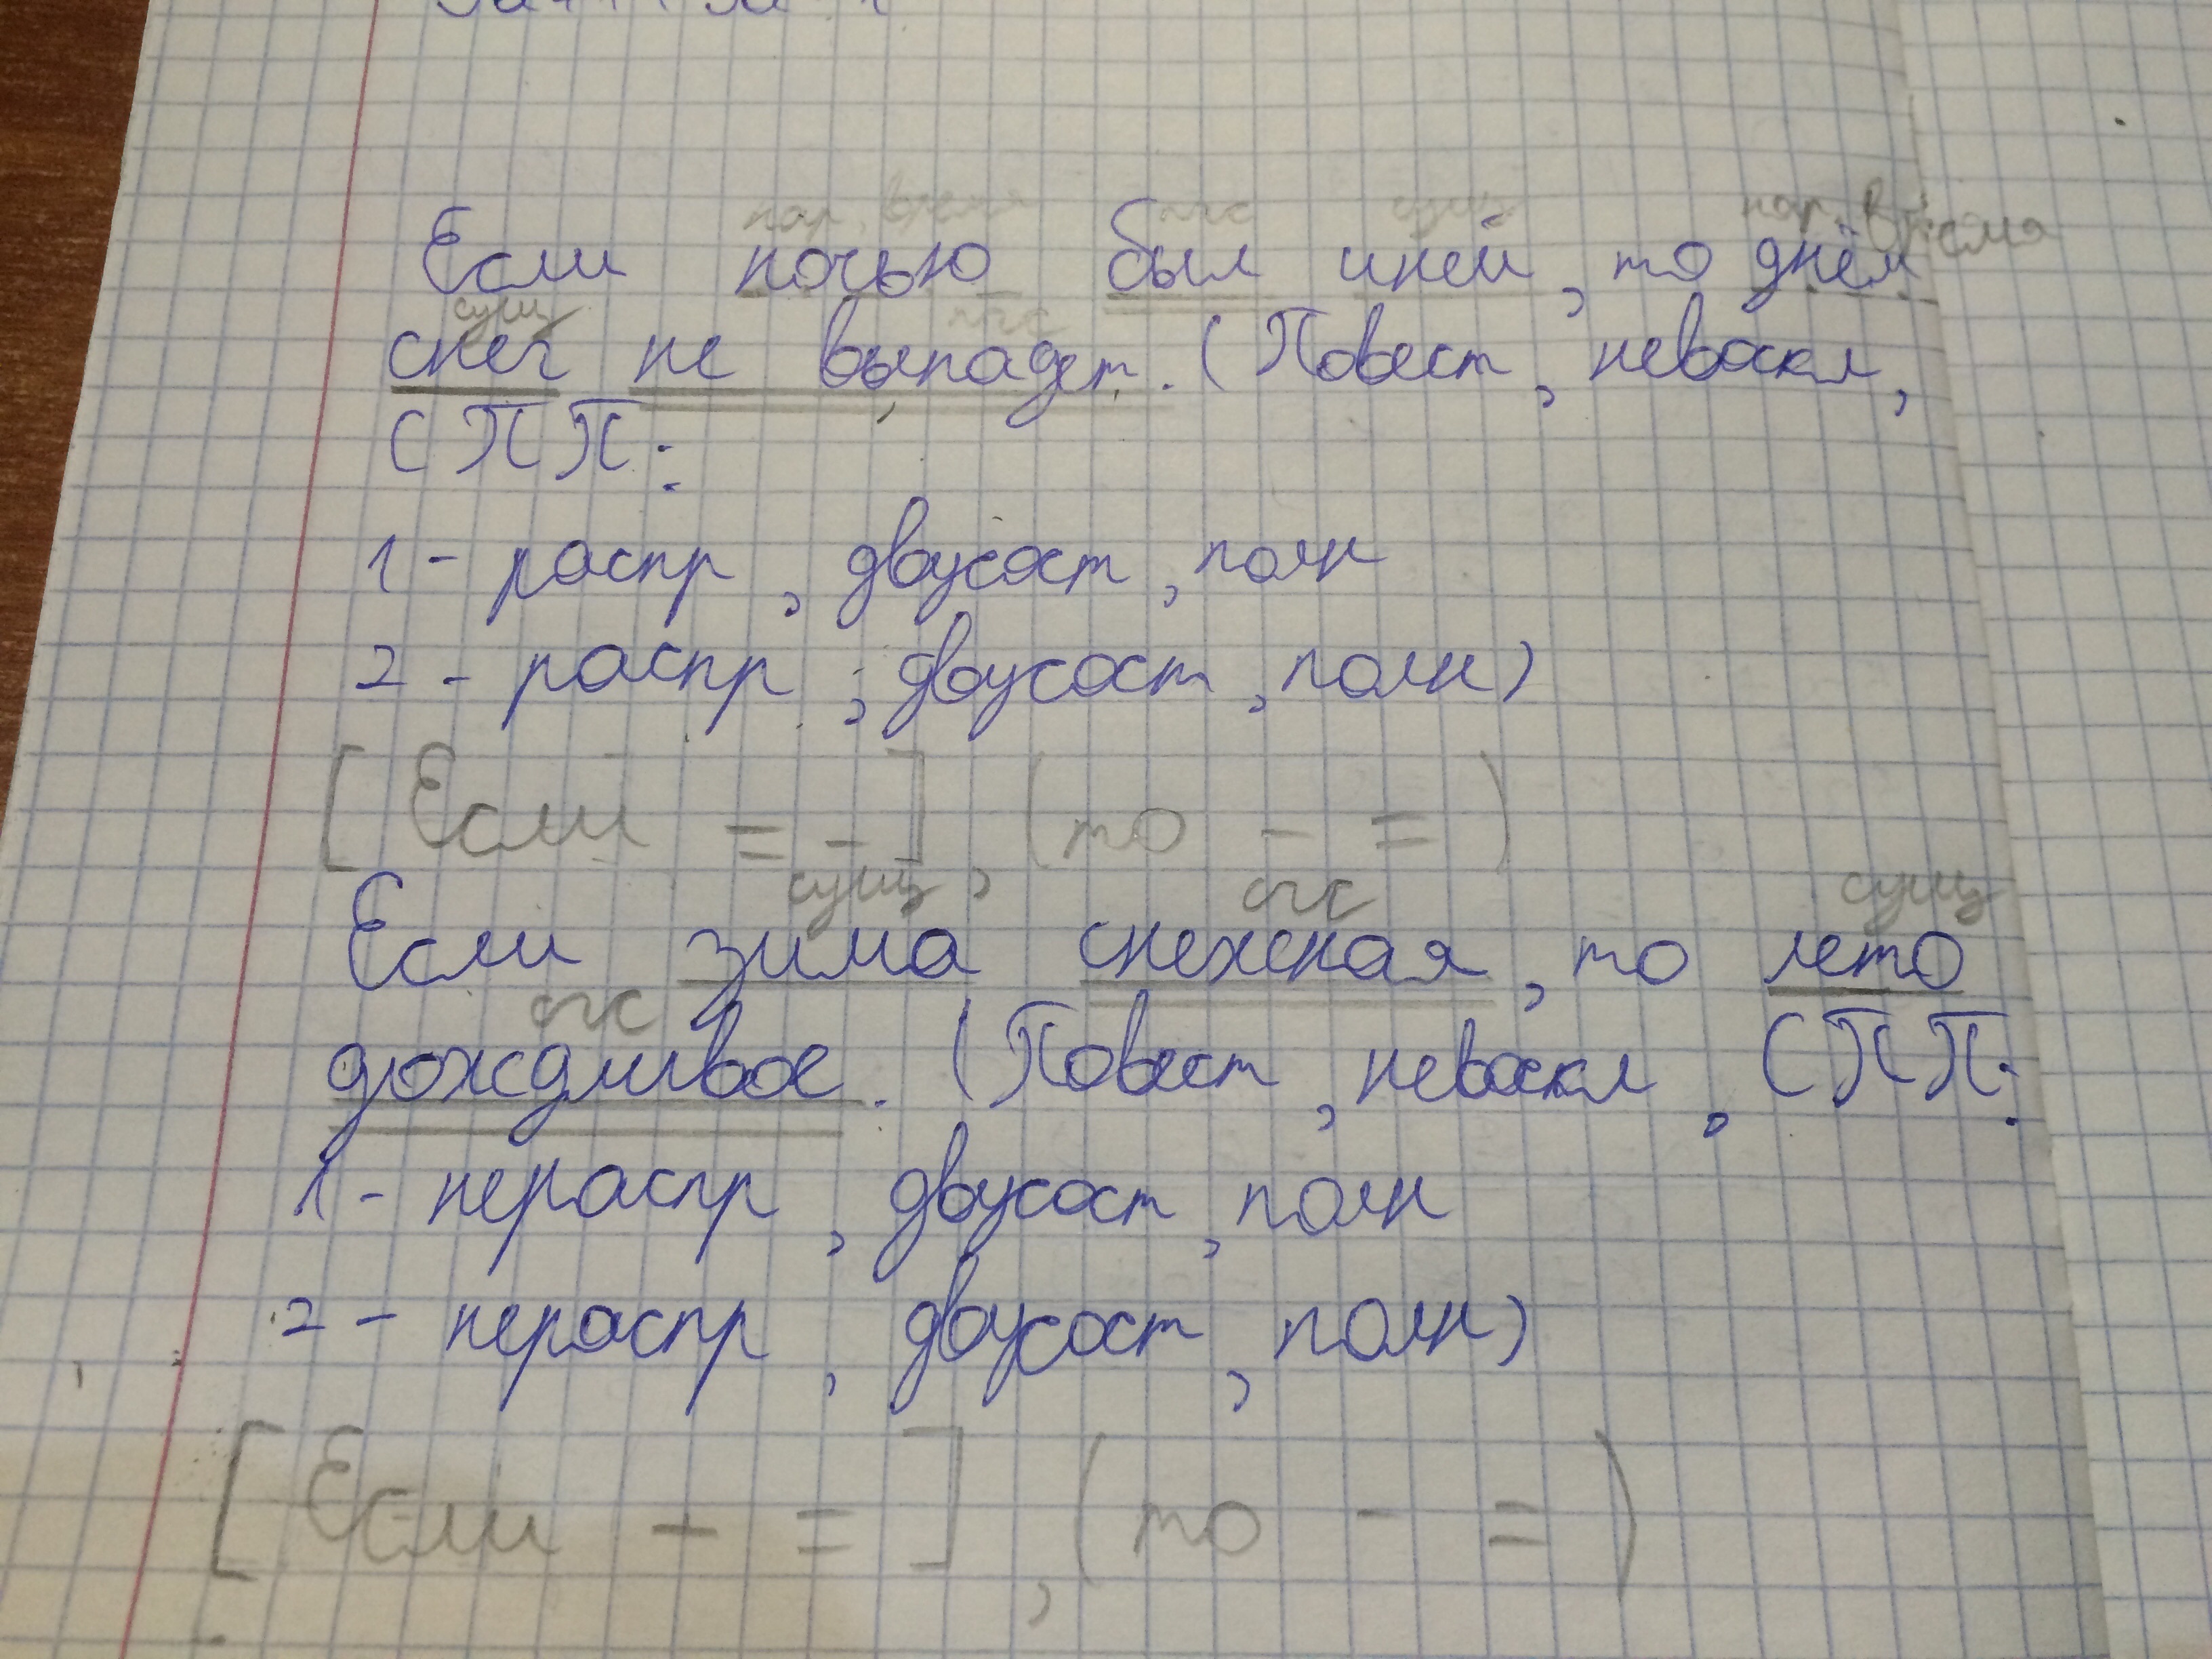 нар. время пгс сущ нар. время
Если ночью был иней, то днём
сущ пгс
снег не выпадет. (Повест, невоскл,
СПП:
1 - распр, двусост, полн
2 - распр, двусост, полн)
[Если = -], (то - =)
сущ сгс сущ
Если зима снежная, то лето
сгс
дождливое. (Повест, невоскл, СПП:
1 - нераспр, двусост, полн
2 - нераспр, двусост, полн)
[Если - =], (то - =)